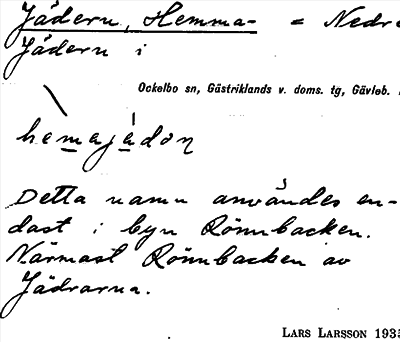 Jädern, Hemma- = Nedre
Jädern i
Ockelbo sn, Gästriklands v. doms. tg, Gävleb.
hemajádọn
Detta namn användes en-
dast i byn Rönnbacken.
Närmast Rönnbacken av
Jädrarna.
LARS LARSSON 1935